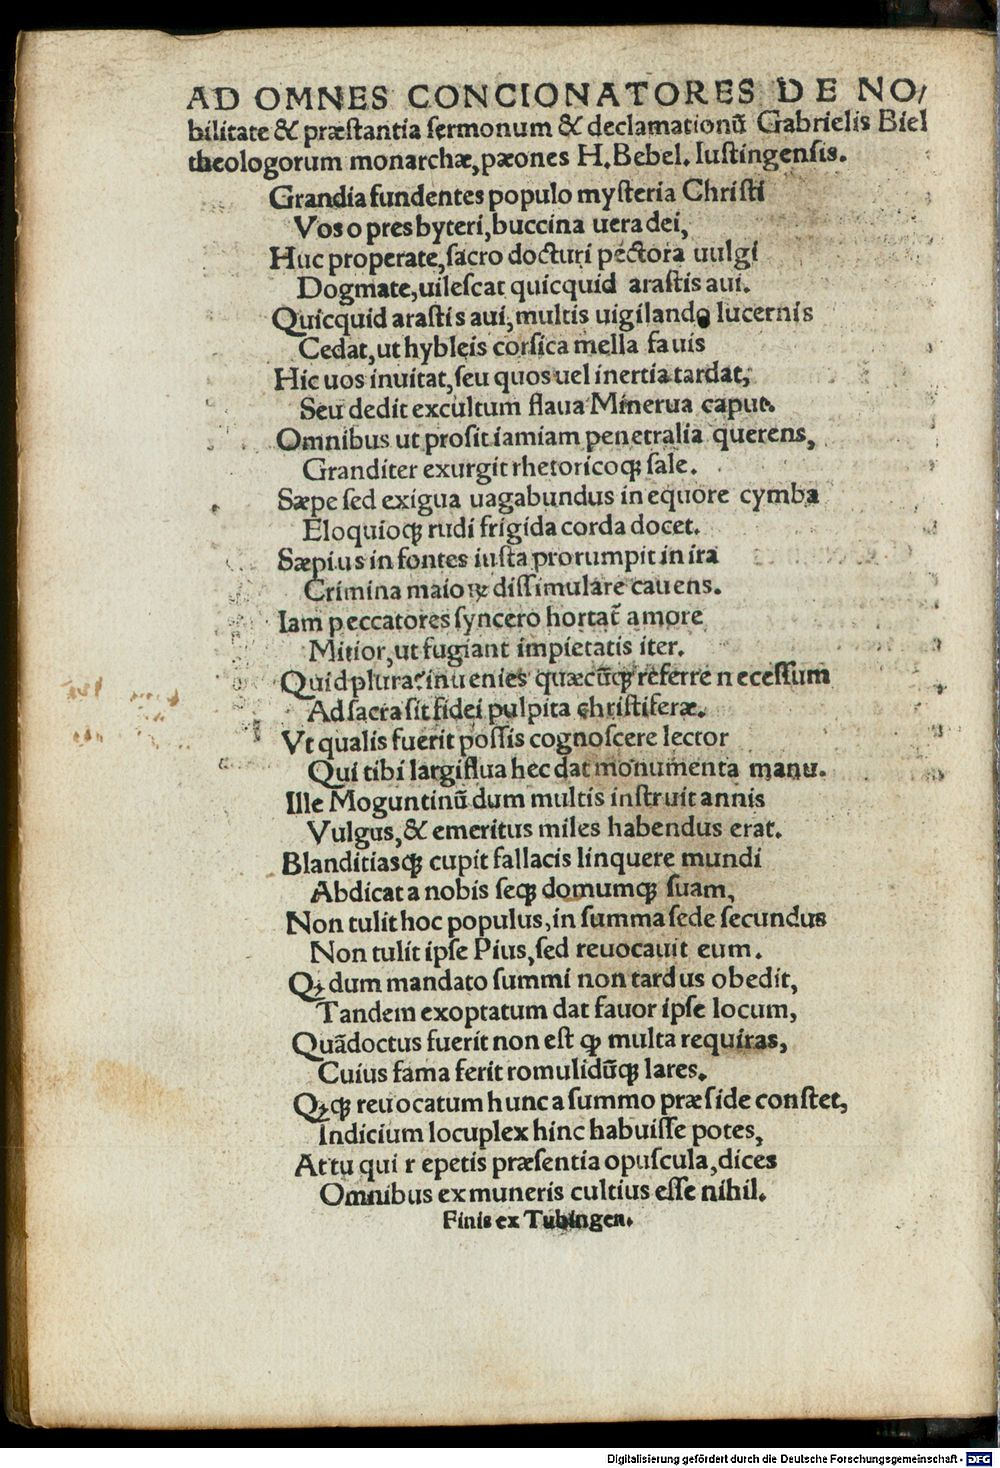 AD OMNES CONCIONATORES DE NO/
bilitate & præstantia sermonum & declamationū Gabrielis Biel
theologorum monarchæ, pæones H. Bebel. Iustingensis.
Grandia fundentes populo mysteria Christi
Vos o presbyteri, buccina uera dei,
Huc properate, sacro docturi pectora uulgi
Dogmate, uilescat quicquid arastis aui.
Quicquid arastis aui, multis uigilando lucernis
Cedat, ut hybleis corsica mella fauis
Hic uos inuitat, seu quos uel inertia tardat,
Seu dedit excultum flaua Minerua caput.
Omnibus ut prosit iamiam penetralia querens,
Granditer exurgit rhetoricoqꝫ sale.
Sæpe sed exigua uagabundus in equore cymba
Eloquioqꝫ rudi frigida corda docet.
Sæpius in fontes iusta prorumpit in ira
Crimina maioꝝ dissimulare cauens.
Iam peccatores syncero hortat̃ amore
Mitior, ut fugiant impietatis iter.
Quid plura? inuenies quæcūqꝫ referre necessum
Ad sacra sit fidei pulpita christiferæ.
Vt qualis fuerit possis cognoscere lector
Qui tibi largiflua hec dat monumenta manu.
Ille Moguntinū dum multis instruit annis
Vulgus, & emeritus miles habendus erat.
Blanditiasqꝫ cupit fallacis linquere mundi
Abdicat a nobis seqꝫ domumqꝫ suam,
Non tulit hoc populus, in summa sede secundus
Non tulit ipse Pius, sed reuocauit eum.
Qꝫ dum mandato summi non tardus obedit,
Tandem exoptatum dat fauor ipse locum,
Quādoctus fuerit non est ꝙ multa requiras,
Cuius fama ferit romulidūqꝫ lares.
Qꝫqꝫ reuocatum hunc a summo præside constet,
Indicium locuplex hinc habuisse potes,
At tu qui repetis præsentia opuscula, dices
Omnibus ex muneris cultius esse nihil.
Finis ex Tubingen.
Digitalisierung gefördert durch die Deutsche Forschungsgemeinschaft - DFG